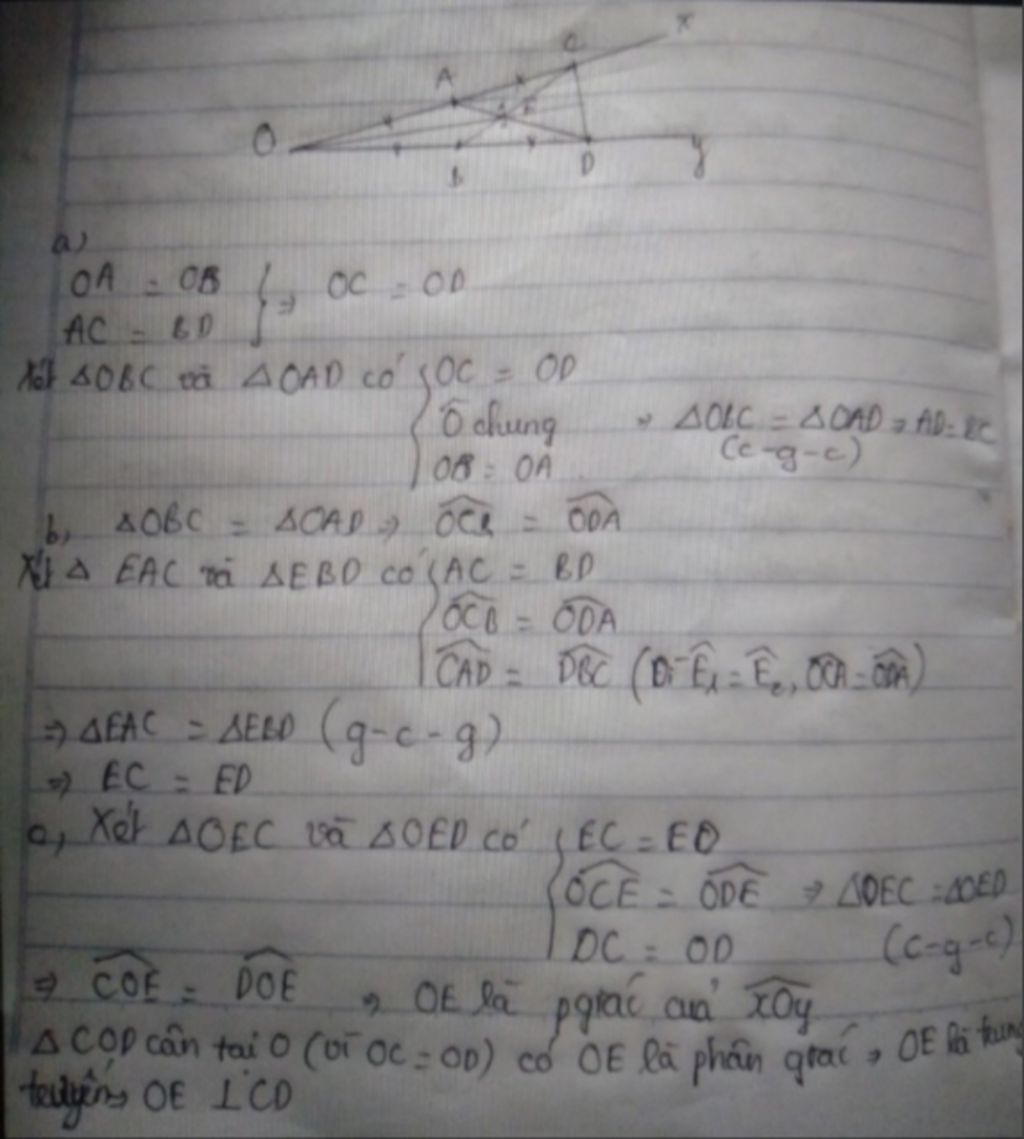 x
C
A
E
O
B
D
y
a)
OA = OB
AC = BD } ⇒ OC = OD
Xét ΔOBC và ΔOAD có { OC = OD
Ô chung ⇒ ΔOBC = ΔOAD ⇒ AD = BC
OB = OA (c-g-c)
b, ΔOBC = ΔOAD ⇒ \widehat{OCB} = \widehat{ODA}
Xét Δ EAC và ΔEBD có { AC = BD
\widehat{OCB} = \widehat{ODA}
\widehat{CAD} = \widehat{DBC} (Vì Ê₁ = Ê₂, \widehat{OCA} = \widehat{ODA})
⇒ ΔEAC = ΔEBD (g-c-g)
⇒ EC = ED
c, Xét ΔOEC và ΔOED có { EC = ED
\widehat{OCE} = \widehat{ODE} ⇒ ΔOEC = ΔOED
OC = OD (c-g-c)
⇒ \widehat{COE} = \widehat{DOE} ⇒ OE là pgiác của \widehat{xOy}
ΔCOD cân tại O (vì OC = OD) có OE là phân giác ⇒ OE là trung
tuyến ⇒ OE ⊥ CD